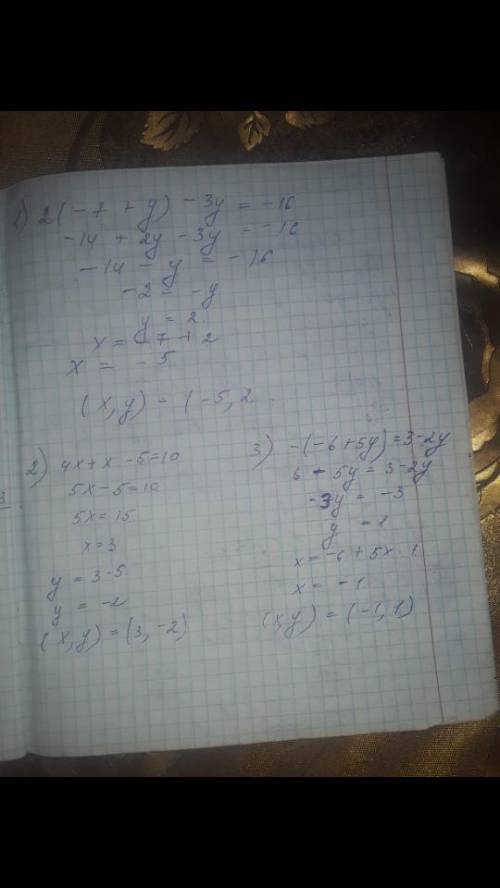 1) 2(-7 + y) - 3y = -16
-14 + 2y - 3y = -16
-14 - y = -16
-2 = -y
y = 2
x = -7 + 2
x = -5
(x, y) = (-5, 2
2) 4x + x - 5 = 10
5x - 5 = 10
5x = 15
x = 3
y = 3 - 5
y = -2
(x, y) = (3, -2)
3) -(-6 + 5y) = 3 - 2y
6 - 5y = 3 - 2y
-3y = -3
y = 1
x = -6 + 5x 1
x = -1
(x, y) = (-1, 1)